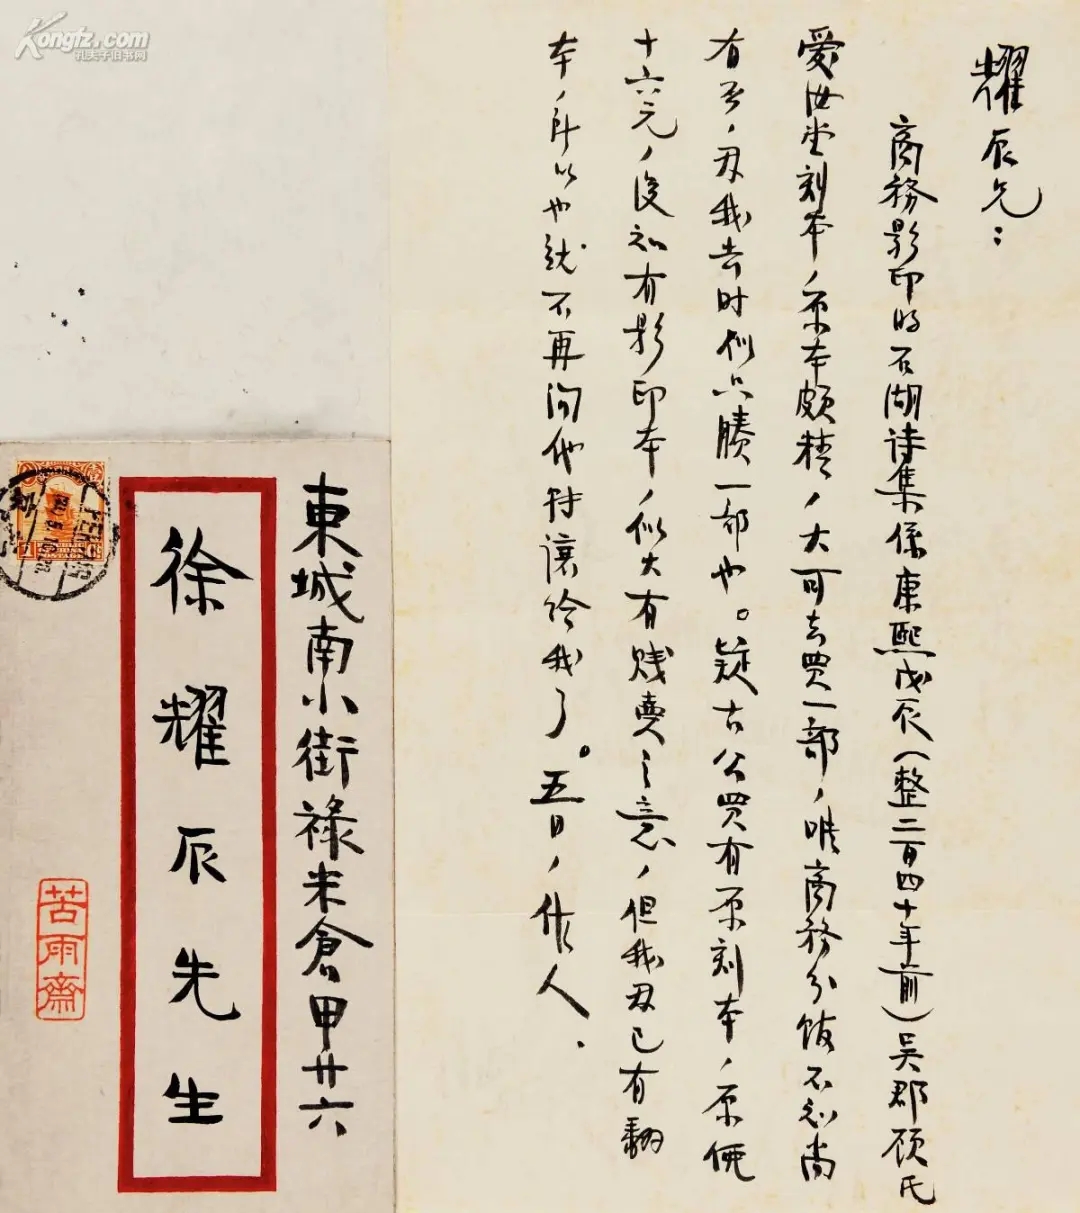 耀辰兄：
商務影印的石湖诗集係康熙戊辰（整二百四十年前）吴郡顾氏
愛汝堂刻本，原本颇精，大可去買一部，唯商務分館不知尚
有否，因我去时似只賸一部也。疑古公買有原刻本，原価
十六元，後知有影印本，似大有贱賣之意，但我因已有翻
本，所以也就不再问他转讓给我了。五日，作人．
東城南小街祿米倉甲廿六
徐耀辰先生
苦雨齋
Kongfz.com
孔夫子旧书网